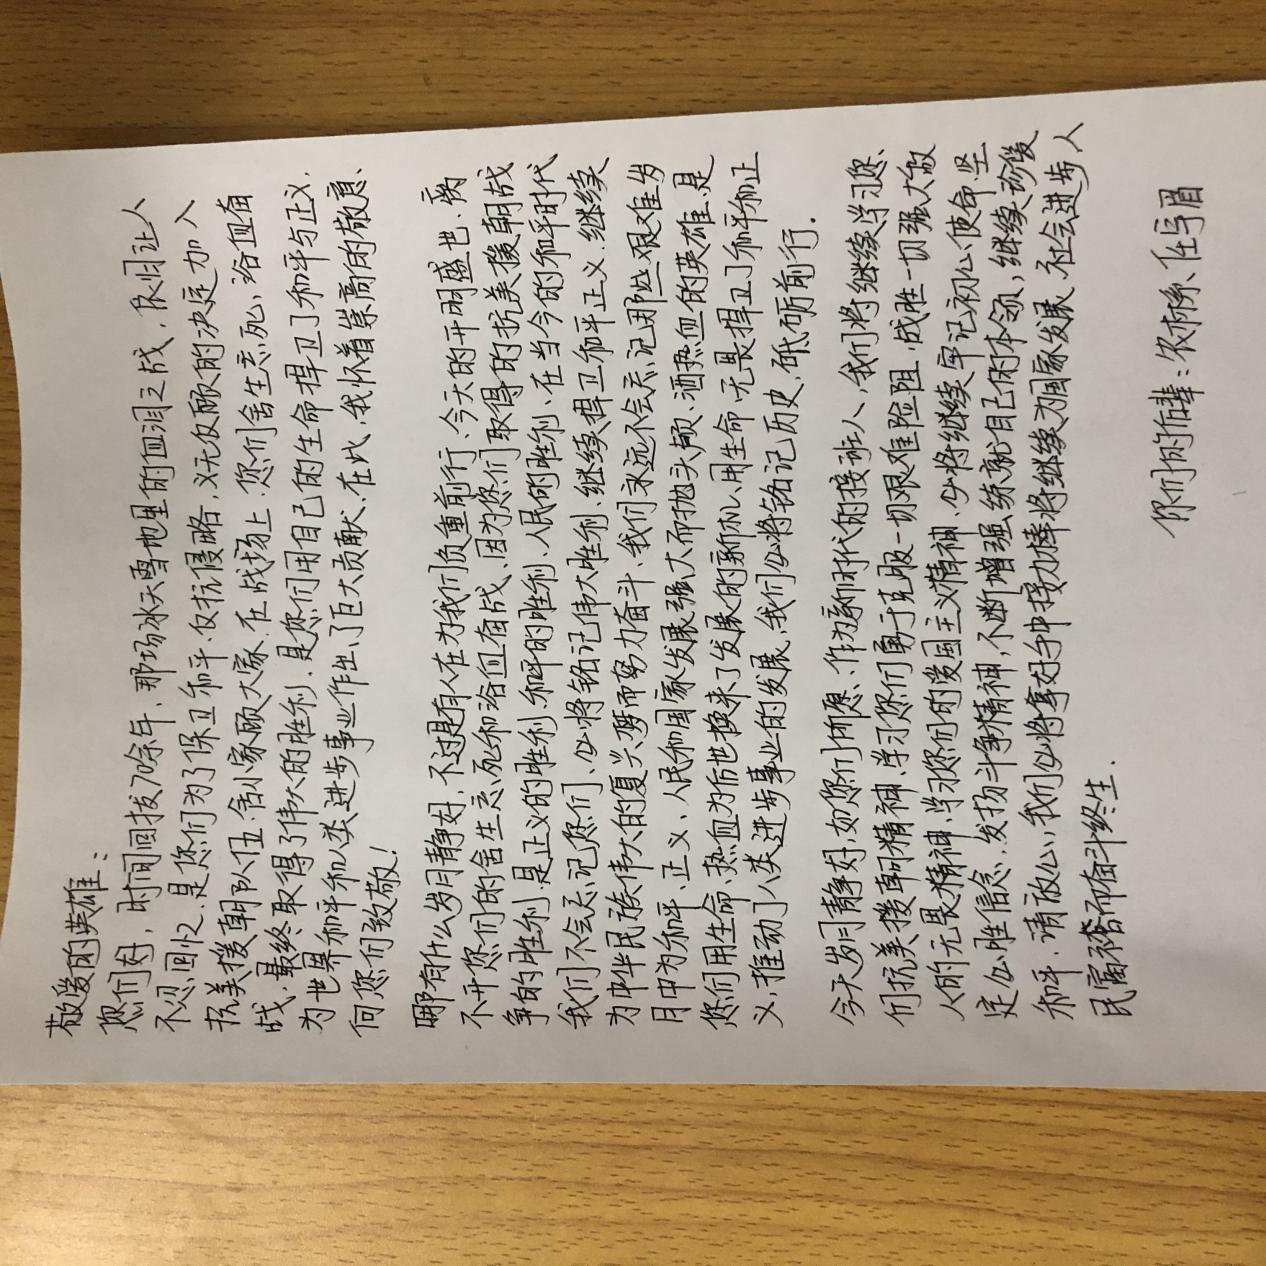 敬爱的英雄：
您们好，时间回拨70余年，那场冰天雪地里的血泪之战，依旧让人
不忍回忆，是您们为了保卫和平、仅抗侵略，义无反顾的决定加入
抗美援朝队伍，舍小家顾大家，在战场上，您们舍生忘死，浴血奋
战，最终取得了伟大的胜利，是您们用自己的生命捍卫了和平与正义，
为世界和平和人类进步事业作出了巨大贡献、在此，我怀着崇高的敬意、
向您们致敬！
哪有什么岁月静好，不过是有人在为我们负重前行、今天的开明盛世、离
不开您们的舍生忘死和浴血奋战、因为您们取得的抗美援朝战
争的胜利，是正义的胜利、和平的胜利、人民的胜利、在当今的和平时代
我们不会忘记您们、必将铭记伟大胜利、继续捍卫和平正义、继续
为中华民族伟大的复兴梦而努力奋斗、我们永远不会忘记那些艰难岁
月中为和平、正义、人民和国家发展强大而抛头颅、洒热血的英雄、是
您们用生命、热血为后世换来了发展的新机、用生命无畏捍卫了和平和正
义，推动了人类进步事业的发展，我们必将铭记历史，砥砺前行．
今天岁月静好，如您们所愿、作为新时代的接班人，我们将继续学习您、
们抗美援朝精神、学习您们勇于克服一切艰难险阻，战胜一切强大敌
人的无畏精神，学习您们的爱国主义精神、必将继续牢记初心使命、坚
定心唯信念、发扬斗争精神，不断增强练就自己的本领，继续
和斗．请放心，我们必将拿好手中接力棒将继续为国家发展、社会进步、人
民富裕而奋斗终生．
你们的后辈：农林、任宇